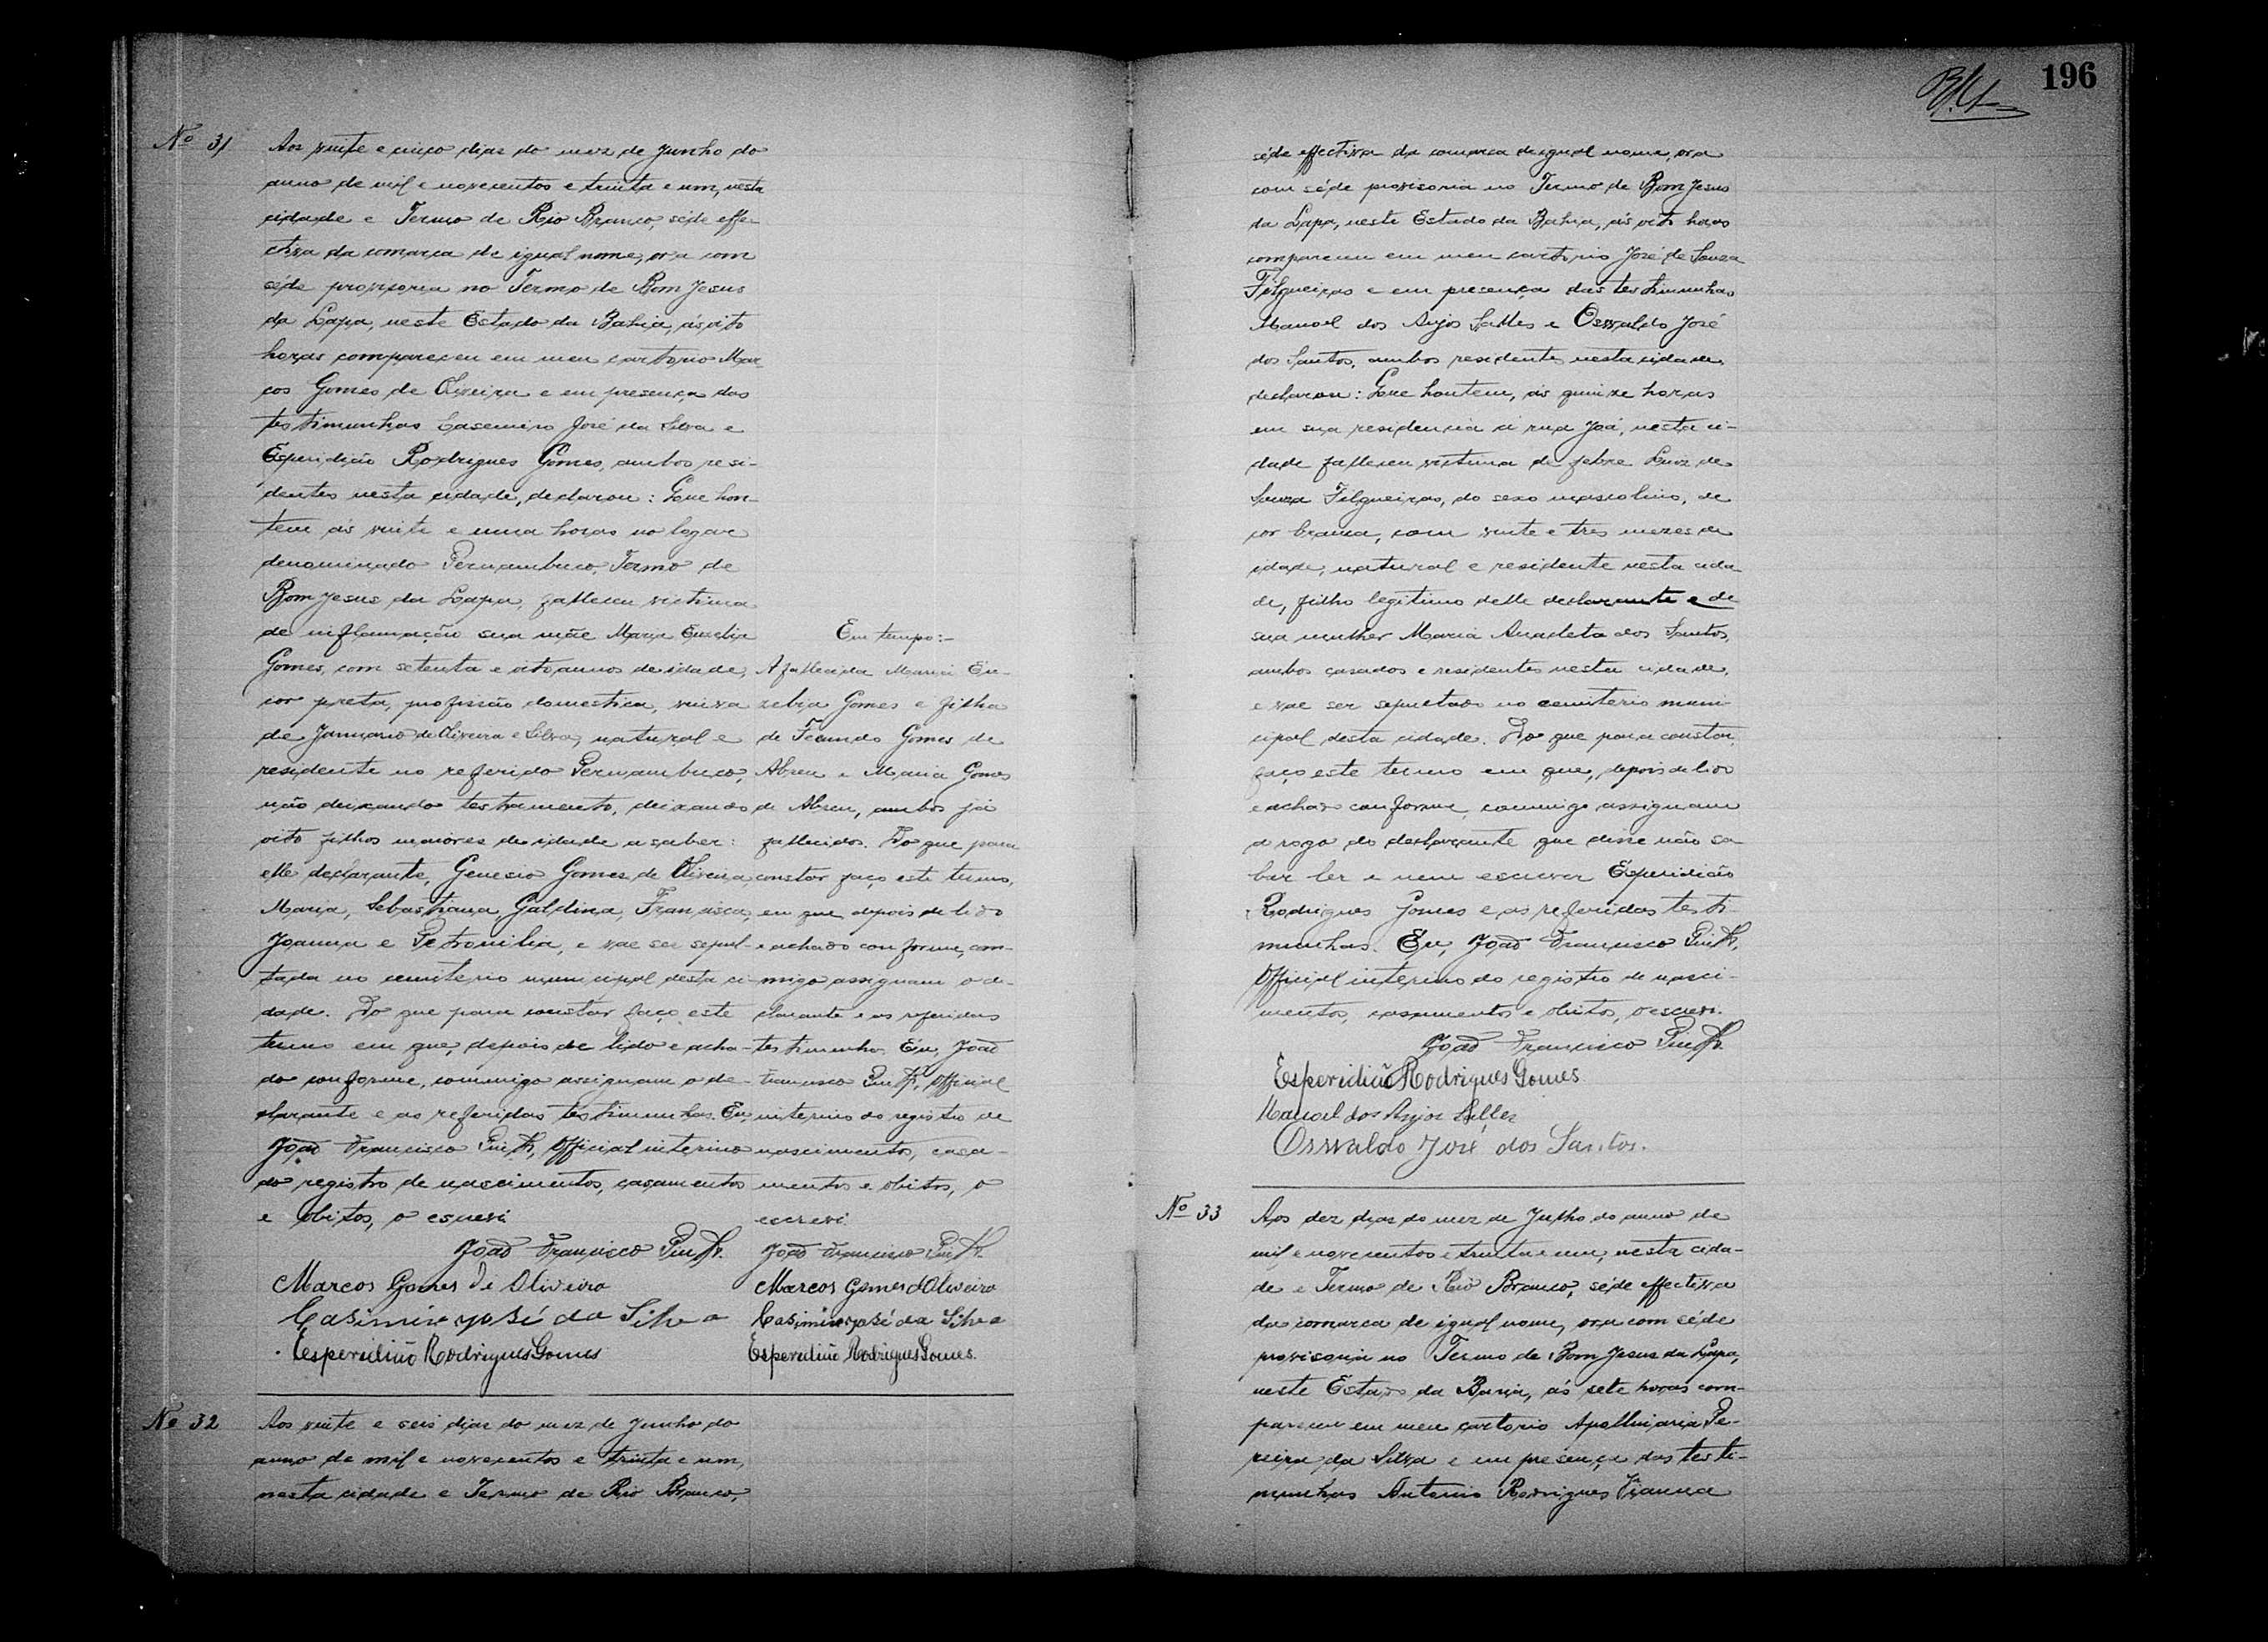 Nº 31
Aos vinte e cinco dias do mez de Junho do
anno de mil e novecentos e trinta e um, nesta
cidade e Termo de Rio Branco, séde effe-
ctiva da comarca de igual nome, ora com
séde provisoria no Termo de Bom Jesus
da Lapa, neste Estado da Bahia, ás oito
horas compareceu em meu cartorio Mar-
cos Gomes de Oliveira e em presença das
testimunhas Casemiro José da Silva e
Esperidião Rodrigues Gomes, ambos resi-
dentes nesta cidade, declarou: Que hon-
tem ás vinte e uma horas no logar
denominado Pernambuco, Termo de
Bom Jesus da Lapa, falleceu victima
de inflamação sua mãe Maria Euzebia
Gomes, com setenta e oito annos de idade,
cor preta, profissão domestica, viuva
de Januario de Oliveira e Silva, natural e
residente no referido Pernambuco,
não deixando testamento, deixando
oito filhos maiores de idade a saber:
elle declarante, Genesio Gomes de Oliveira,
Maria, Sebastiana, Galdina, Francisca,
Joanna e Petronilia, e vae ser sepul-
tada no cemiterio municipal desta ci-
dade. Do que para constar faço este
termo em que, depois de lido e acha-
do conforme, commigo assignam o de-
clarante e as referidas testimunhas. Eu,
João Francisco, Official interino
do registro de nascimentos, casamentos
e obitos, o escrevi.
João Francisco
Marcos Gomes De Oliveira
Casimiro José da Silva
Esperidião Rodrigues Gomes
Em tempo:-
A fallecida Maria Eu-
zebia Gomes e filha
de Facundo Gomes de
Abreu e Maria Gomes
de Abreu, ambos já
fallecidos. Do que para
constar faço este termo,
em que, depois de lido
e achado conforme, com-
migo assignam o de-
clarante e as referidas
testimunhas. Eu, João
Francisco, Official
interino do registro de
nascimentos, casa-
mentos e obitos, o
escrevi.
João Francisco
Marcos Gomes d Oliveira
Casimiro José da Silva
Esperidião Rodrigues Gomes.
Nº 32
Aos vinte e seis dias do mez de Junho do
anno de mil e novecentos e trinta e um,
nesta cidade e Termo de Rio Branco,
196
séde effectiva da comarca de igual nome, ora
com séde provisoria no Termo de Bom Jesus
da Lapa, neste Estado da Bahia, ás oito horas
compareceu em meu cartorio José de Souza
Filgueiras e em presença das testimunhas
Manoel dos Anjos Salles e Oswaldo José
dos Santos, ambos residentes nesta cidade,
declarou: Que hontem, ás quinze horas
em sua residencia á rua Joá, nesta ci-
dade falleceu victima de febre Luiz de
Souza Filgueiras, do sexo masculino, de
cor branca, com vinte e tres mezes de
idade, natural e residente nesta cida-
de, filho legitimo delle declarante e de
sua mulher Maria Anacleta dos Santos,
ambos casados e residentes nesta cidade,
e vae ser sepultado no cemiterio muni-
cipal desta cidade. Do que para constar,
faço este termo em que, depois de lido
e achado conforme, commigo assignam
a rogo do declarante que disse não sa-
ber ler e nem escrever Esperidião
Rodrigues Gomes e as referidas testi-
munhas. Eu, João Francisco,
Official interino do registro de nasci-
mentos, casamentos e obitos, o escrevi.
João Francisco
Esperidião Rodrigues Gomes
Manoel dos Anjos Salles
Osswaldo José dos Santos.
Nº 33
Aos dez dias do mez de Julho do anno de
mil e novecentos e trinta e um, nesta cida-
de e Termo de Rio Branco, séde effectiva
da comarca de igual nome, ora com séde
provisoria no Termo de Bom Jesus da Lapa,
neste Estado da Bahia, ás sete horas com-
pareceu em meu cartorio Apollinaria Pe-
reira da Silva e em presença das testi-
munhas Antonio Rodrigues Vianna